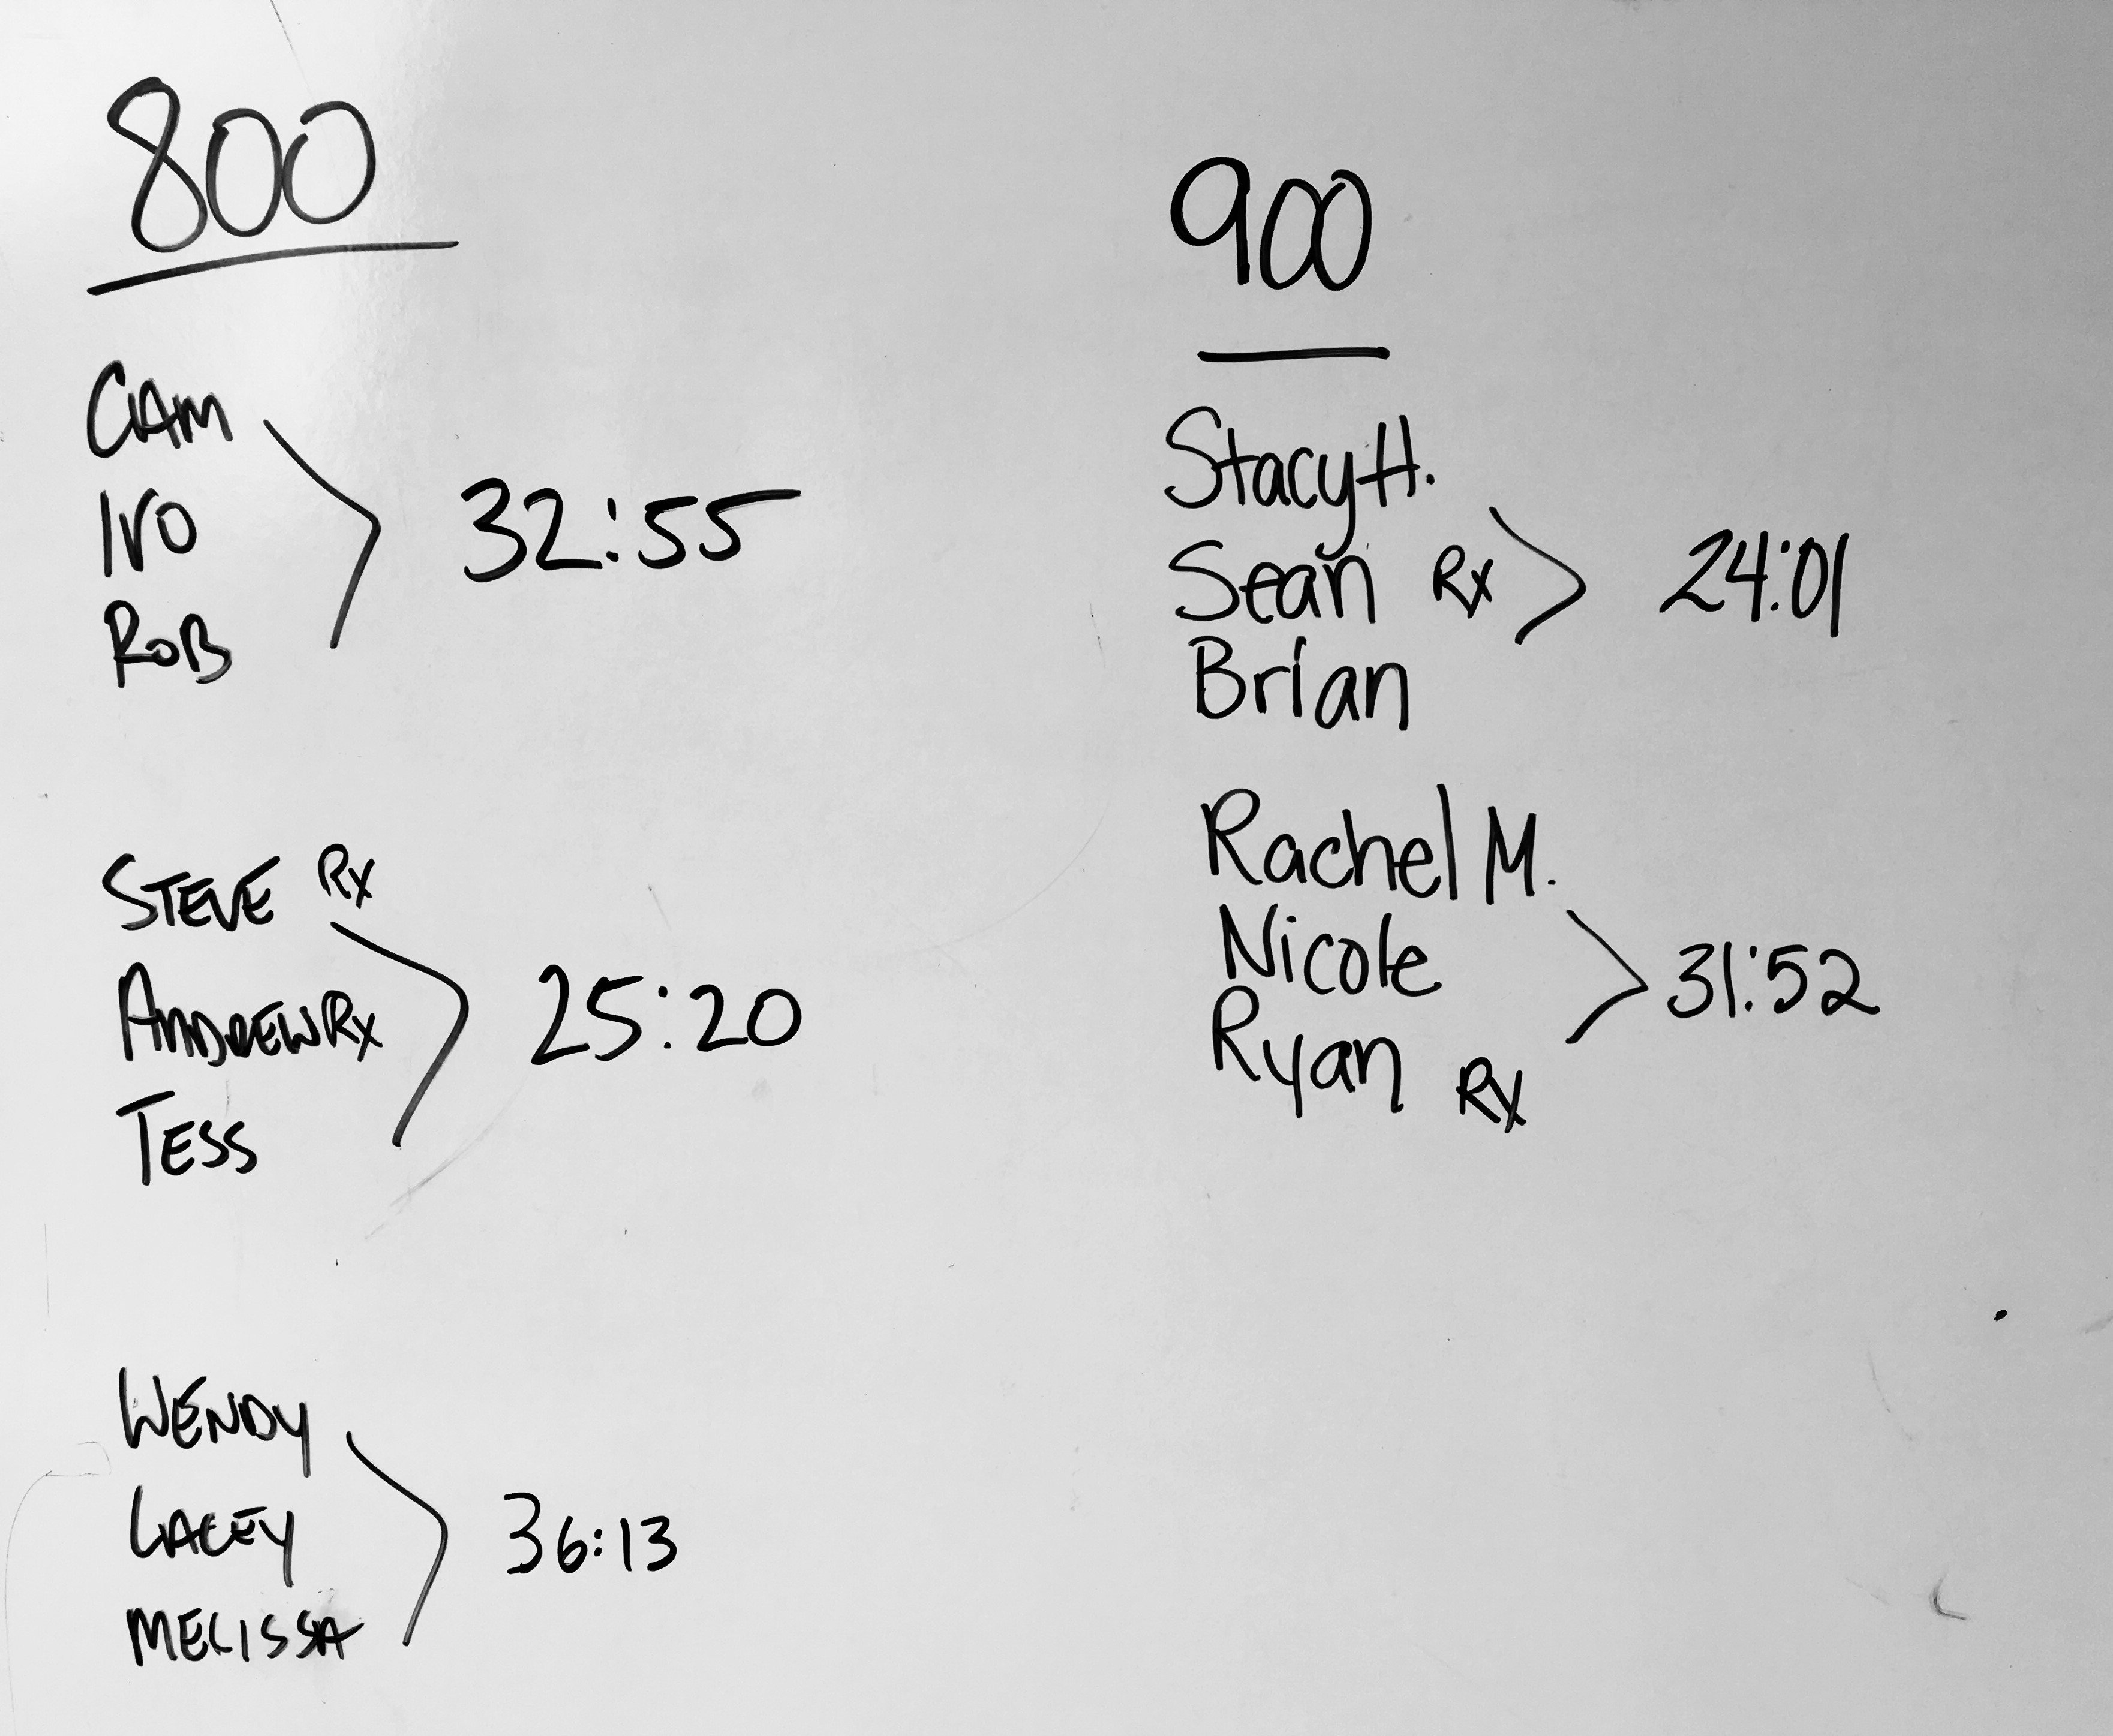 800
CAM
IVO
ROB
32:55
STEVE Rx
ANDREW Rx
TESS
25:20
WENDY
LACEY
MELISSA
36:13
900
Stacy H.
Sean Rx
Brian
24:01
Rachel M.
Nicole
Ryan Rx
31:52